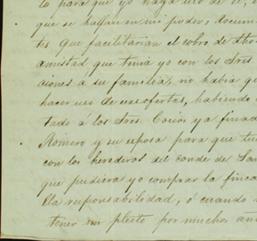 to para que yo haga uso de el, o
que se hallan en mi poder, docum
tes que facilitarian el cobro de dho
amistad que tenia yo con los Sres
ciones a su familia, no habia que
hacer uso de esas ofertas, habiendo
tado á los Sres. ya finad
Romero y su esposa para que tu
con los herederos del conde de San
que pudiera yo comprar la finca
lla responsabilidad, ó cuando
tener un pleito por muchos añ